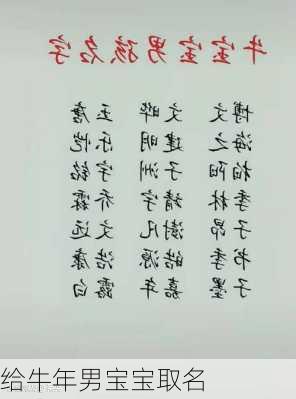 牛宝宝男孩名字
博文 文晔 玉唐
海之 建明 乐恺
柏阳 子洲 宇铭
季林 靖宇 乔霖
子昂 澍凡 文远
书季 皓源 浩康
子墨 嘉年 白露
给牛年男宝宝取名